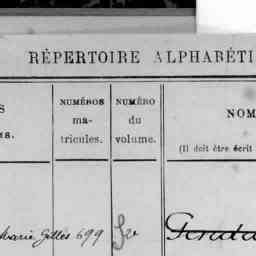 RÉPERTOIRE ALPHABÉTI
S
MS.
NUMÉROS
ma-
tricules.
NUMÉRO
du
volume.
NOM
(Il doit être écrit
Marie Gilles 699